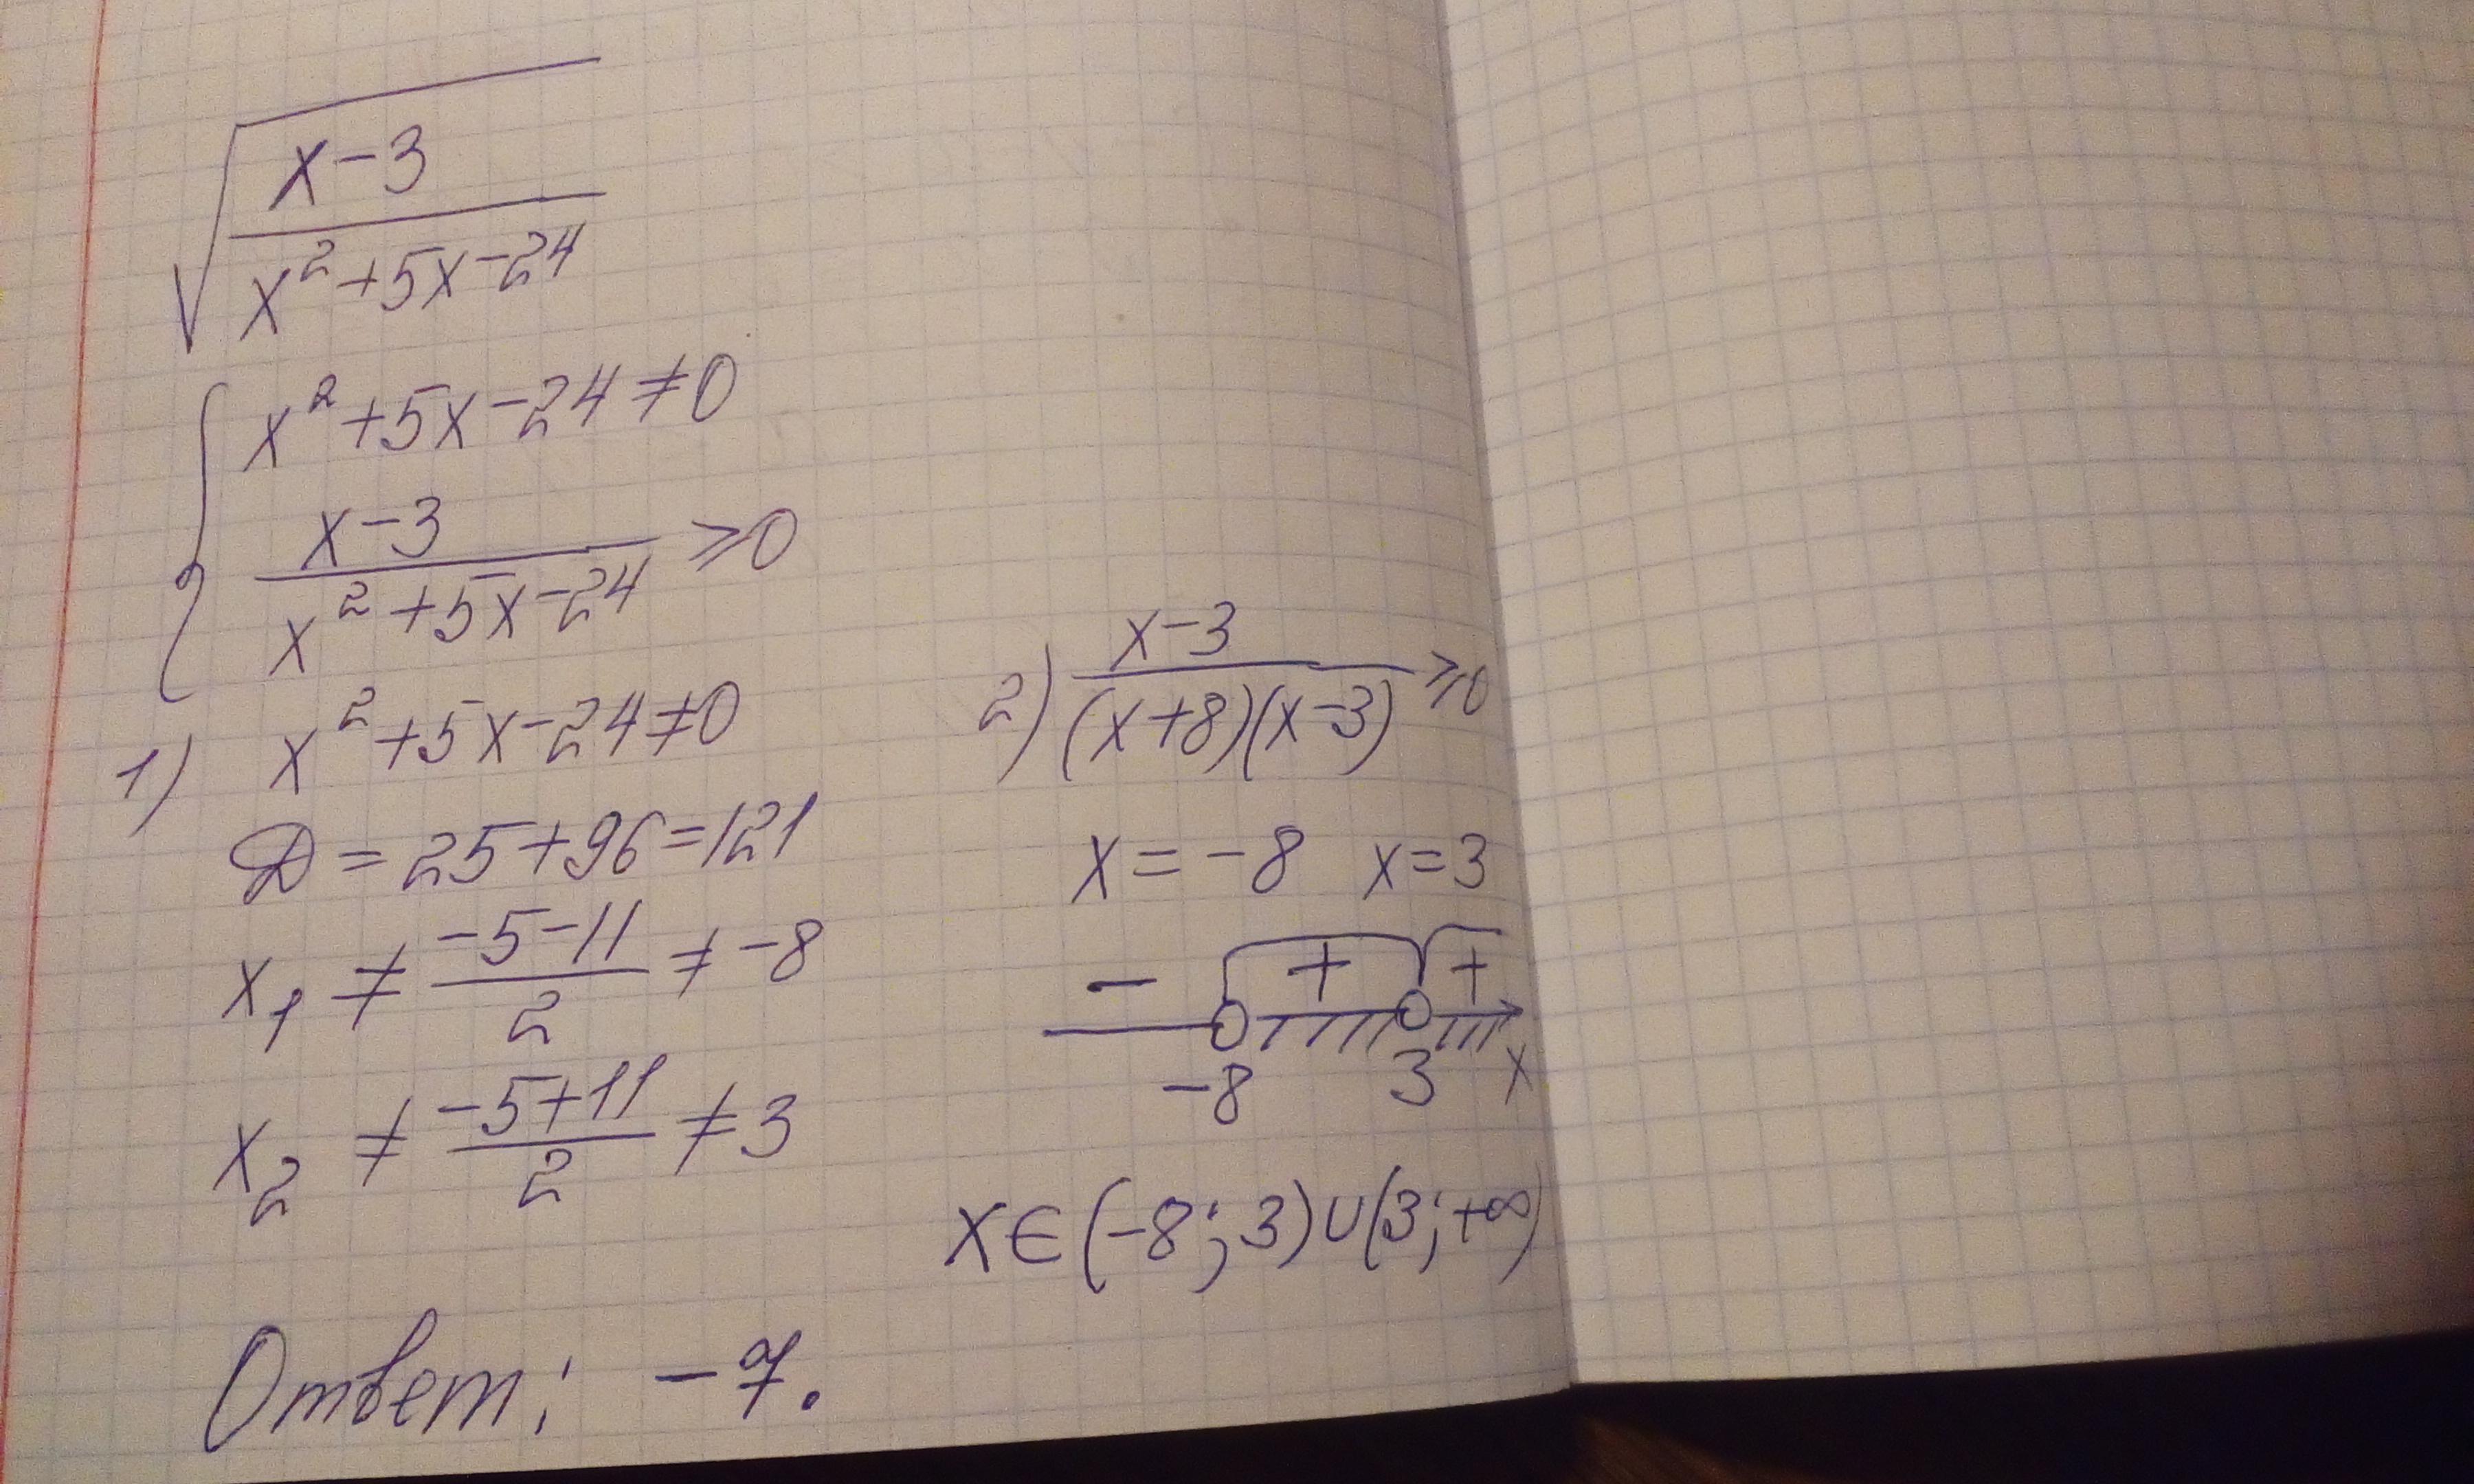 √((x-3)/(x²+5x-24))
{ x²+5x-24≠0
(x-3)/(x²+5x-24) ⩾0
1) x²+5x-24≠0
D=25+96=121
x₁ ≠ (-5-11)/2 ≠ -8
x₂ ≠ (-5+11)/2 ≠ 3
2) (x-3)/((x+8)(x-3)) ⩾0
x=-8 x=3
- + +
-8 3 x
x∈(-8;3)∪(3;+∞)
Ответ: -7.